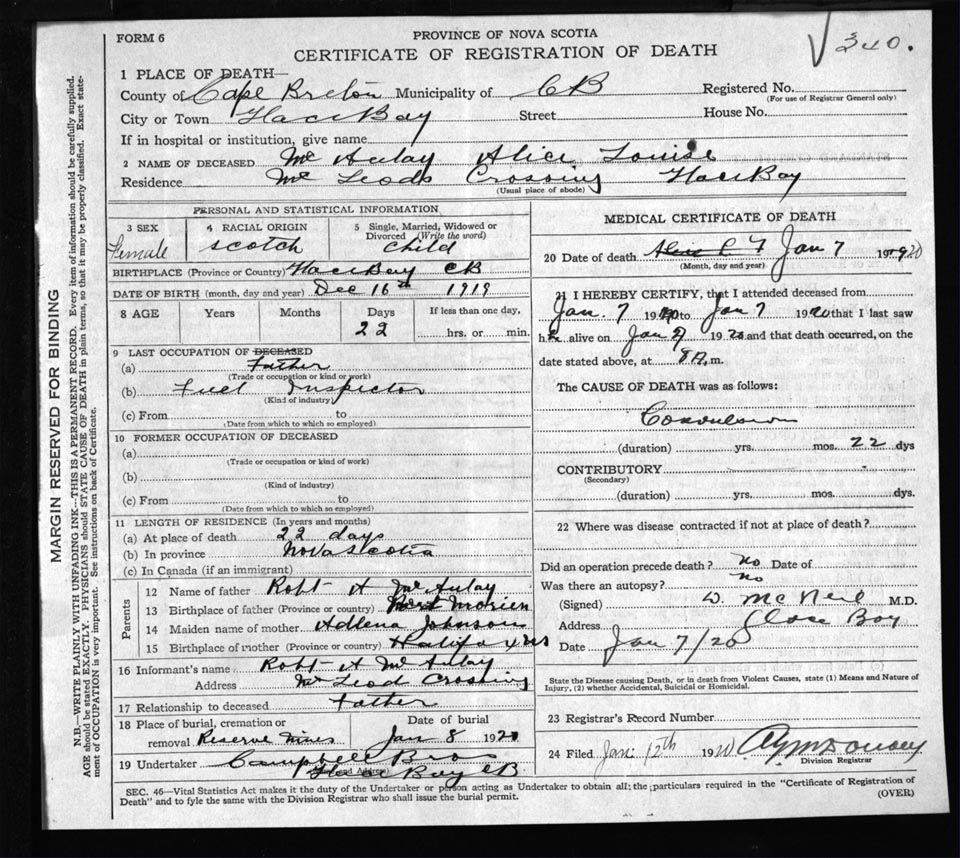 FORM 6
PROVINCE OF NOVA SCOTIA
CERTIFICATE OF REGISTRATION OF DEATH
√ 340.
1 PLACE OF DEATH—
County of Cape Breton Municipality of C B Registered No.
(For use of Registrar General only)
City or Town Glace Bay Street House No.
If in hospital or institution, give name
2 NAME OF DECEASED Mc Aulay Alice Louise
Residence Mc Leods Crossing Glace Bay
(Usual place of abode)
PERSONAL AND STATISTICAL INFORMATION
3 SEX 4 RACIAL ORIGIN 5 Single, Married, Widowed or Divorced (Write the word)
Female Scotch Child
BIRTHPLACE (Province or Country) Glace Bay CB
DATE OF BIRTH (month, day and year) Dec 16th 1919
8 AGE Years Months Days If less than one day,
22 hrs. or min.
9 LAST OCCUPATION OF DECEASED
(a) Father
(Trade or occupation or kind or work)
(b) Fuel Inspector
(Kind of industry)
(c) From to
(Date from which to which so employed)
10 FORMER OCCUPATION OF DECEASED
(a)
(Trade or occupation or kind of work)
(b)
(Kind of industry)
(c) From to
(Date from which to which so employed)
11 LENGTH OF RESIDENCE (In years and months)
(a) At place of death 22 days
(b) In province Nova Scotia
(c) In Canada (if an immigrant)
Parents
12 Name of father Robt A Mc Aulay
13 Birthplace of father (Province or country) Port Morien
14 Maiden name of mother Adlena Johnson
15 Birthplace of mother (Province or country) Halifax NS
16 Informant's name Robt A Mc Aulay
Address Mc Leod Crossing
17 Relationship to deceased Father
18 Place of burial, cremation or Date of burial
removal Reserve Mines Jan 8 1920
19 Undertaker Campbell Bros
(and Address) Glace Bay CB
MEDICAL CERTIFICATE OF DEATH
20 Date of death Jan 7 1920
(Month, day and year)
21 I HEREBY CERTIFY, that I attended deceased from
Jan. 7 1920 to Jan 7 1920 that I last saw
her alive on Jan 7 1920 and that death occurred, on the
date stated above, at m.
The CAUSE OF DEATH was as follows:
Convulsions
(duration) yrs. mos. 22 dys
CONTRIBUTORY
(Secondary)
(duration) yrs. mos. dys.
22 Where was disease contracted if not at place of death?
Did an operation precede death? no Date of
Was there an autopsy? no
(Signed) D. Mc Neil M.D.
Address Glace Bay
Date Jan 7/20
State the Disease causing Death, or in death from Violent Causes, state (1) Means and Nature of Injury, (2) whether Accidental, Suicidal or Homicidal.
23 Registrar's Record Number
24 Filed Jan: 12th 1920
Division Registrar
SEC. 46—Vital Statistics Act makes it the duty of the Undertaker or person acting as Undertaker to obtain all the particulars required in the "Certificate of Registration of
Death" and to fyle the same with the Division Registrar who shall issue the burial permit. (OVER)
MARGIN RESERVED FOR BINDING
N.B.—WRITE PLAINLY WITH UNFADING INK—THIS IS A PERMANENT RECORD. Every item of information should be carefully supplied.
AGE should be stated EXACTLY. PHYSICIANS should STATE CAUSE OF DEATH in plain terms, so that it may be properly classified. Exact state-
ment of OCCUPATION is very important. See instructions on back of Certificate.